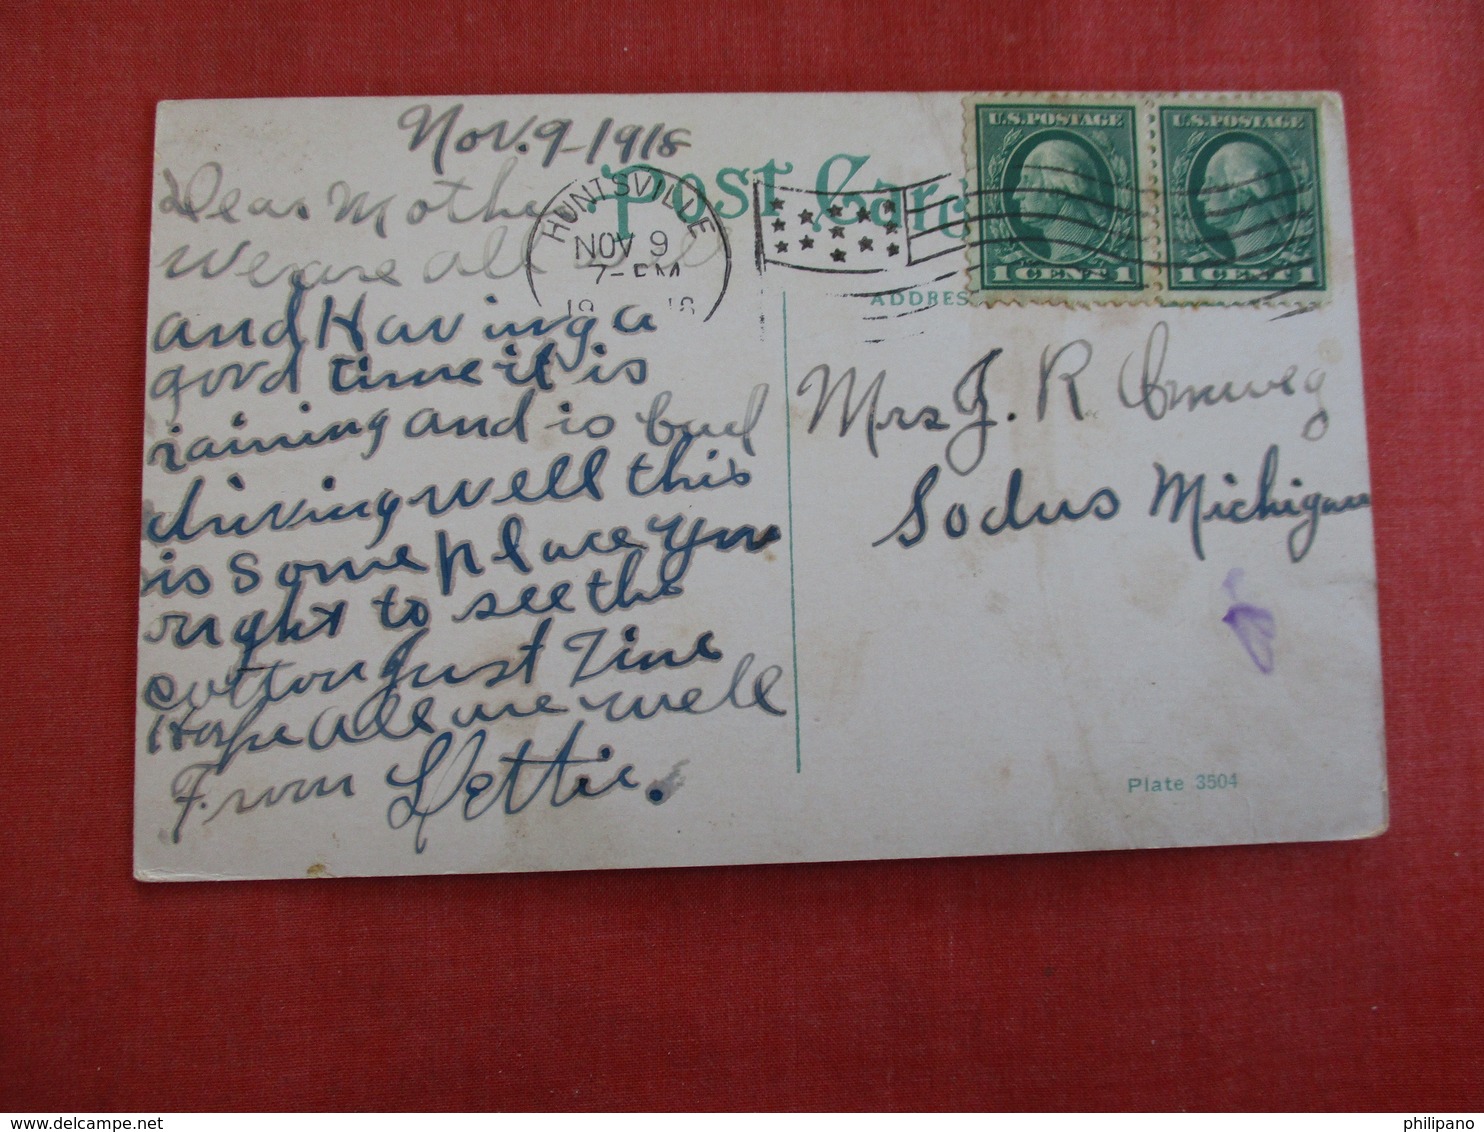 Nov. 9-1918
Post Card
Dear Mother
We are all well
and Having a
good time it is
raining and is bad
driving well this
is some place you
right to see the
cotton just fine
Hope all are well
From Hettie.
HUNTSVILLE
NOV 9
7-PM
ADDRES
U.S. POSTAGE
1 CENT 1
U.S. POSTAGE
1 CENT 1
Mrs J. R
Sodus Michigan
Plate 3504
delcampe.net
philipano